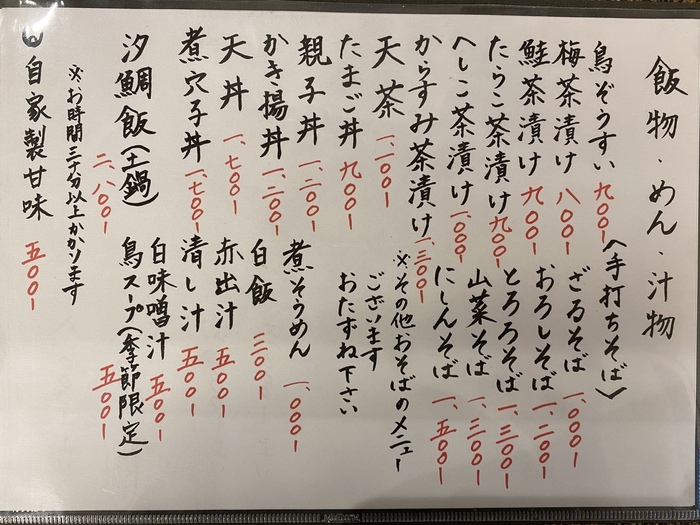 飯物・めん・汁物
鳥ぞうすい 九〇〇-
梅茶漬け 八〇〇-
鮭茶漬け 九〇〇-
たらこ茶漬け 九〇〇-
へしこ茶漬け 一、〇〇〇-
からすみ茶漬け 一、三〇〇-
天茶 一、一〇〇-
たまご丼 九〇〇-
親子丼 一、二〇〇-
かき揚丼 一、二〇〇-
天丼 一、七〇〇-
煮穴子丼 一、七〇〇-
汐鯛飯(土鍋) 二、八〇〇-
※お時間三十分以上かかります
〈手打ちそば〉
ざるそば 一、〇〇〇-
おろしそば 一、二〇〇-
とろろそば 一、三〇〇-
山菜そば 一、三〇〇-
にしんそば 一、五〇〇-
※その他おそばのメニュー
ございます
おたずね下さい
煮そうめん 一、〇〇〇-
白飯 三〇〇-
赤出汁 五〇〇-
清し汁 五〇〇-
白味噌汁 五〇〇-
鳥スープ(季節限定) 五〇〇-
自家製甘味 五〇〇-